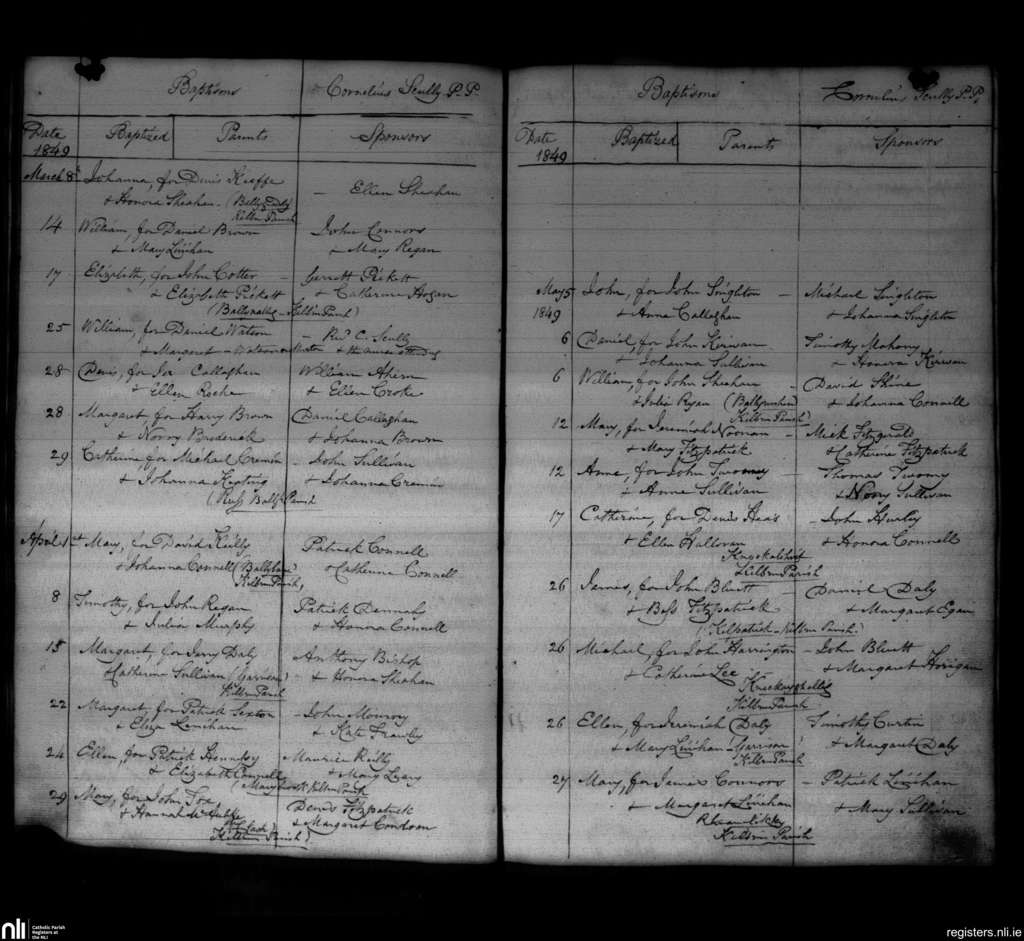 Baptisms Cornelius Scully P.P.
Date 1849 Baptized Parents Sponsors
March 8th Johanna, for Denis Keeffe – Ellen Sheahan
& Honora Sheahan.
Kilbrin Parish
14 William, for Daniel Brown John Connors
& Mary Linihan & Mary Regan
17 Elizabeth, for John Cotter – Garrett Pickett
& Elizabeth Pickett & Catherine Hogan
Kilbrin Parish)
25 William, for Daniel Watson – Revd C. Scully
& Margaret
28 Denis, for Callaghan William Ahern
& Ellen Roche & Ellen Croke
28 Margaret for Harry Brown Daniel Callaghan
& Norry Broderick & Johanna Brown
29 Catherine for Michael Cremin – John Sullivan
& Johanna Keating & Johanna Cremin
Parish
April 1st Mary, for David Reilly Patrick Connell
& Johanna Connell & Catherine Connell
Kilbrin Parish)
8 Timothy, for John Regan Patrick Dennahy
& Julia Murphy & Honora Connell
15 Margaret, for Jerry Daly Anthony Bishop
& Catherine Sullivan (Garrison) & Honora Sheahan
Kilbrin Parish
22 Margaret, for Patrick Sexton – John
& Eliza Lenihan & Kate Frawly
24 Ellen, for Patrick Hennessy Maurice Reilly
& Elizabeth Connell & Mary Leary
Kilbrin Parish
29 Mary, for John Fox Denis Fitzpatrick
& Hannah & Margaret Condran
Kilbrin Parish)
Baptisms Cornelius Scully P.P.
Date 1849 Baptized Parents Sponsors
May 5 John, for John Singleton – Michael Singleton
1849 & Anne Callaghan & Johanna Singleton
6 Daniel, for John Kirwan Timothy Mahony
& Johanna Sullivan & Honora Kirwan
6 William, for John Sheahan – David Shine
& Julia Ryan & Johanna Connell
Kilbrin Parish)
12 Mary, for Jeremiah Noonan – Mick Fitzgerald
& Mary Fitzpatrick & Catherine Fitzpatrick
12 Anne, for John Twomey – Thomas Twomy
& Anne Sullivan & Norry Sullivan
17 Catherine, for Denis – John Hurley
& Ellen Halloran & Honora Connell
Kilbrin Parish
26 James, for John Bluett – Daniel Daly
& Bess Fitzpatrick & Margaret Egan
(Kilpatrick – Kilbrin Parish)
26 Michael, for John Harrington – John Bluett
& Catherine Lee & Margaret Horigan
Kilbrin Parish
26 Ellen, for Jeremiah Daly Timothy Curtin
& Mary Linihan (Garrison) & Margaret Daly
Kilbrin Parish
27 Mary, for James Connors – Patrick Linihan
& Margaret Linihan & Mary Sullivan
Kilbrin Parish
nli Catholic Parish Registers at the NLI
registers.nli.ie